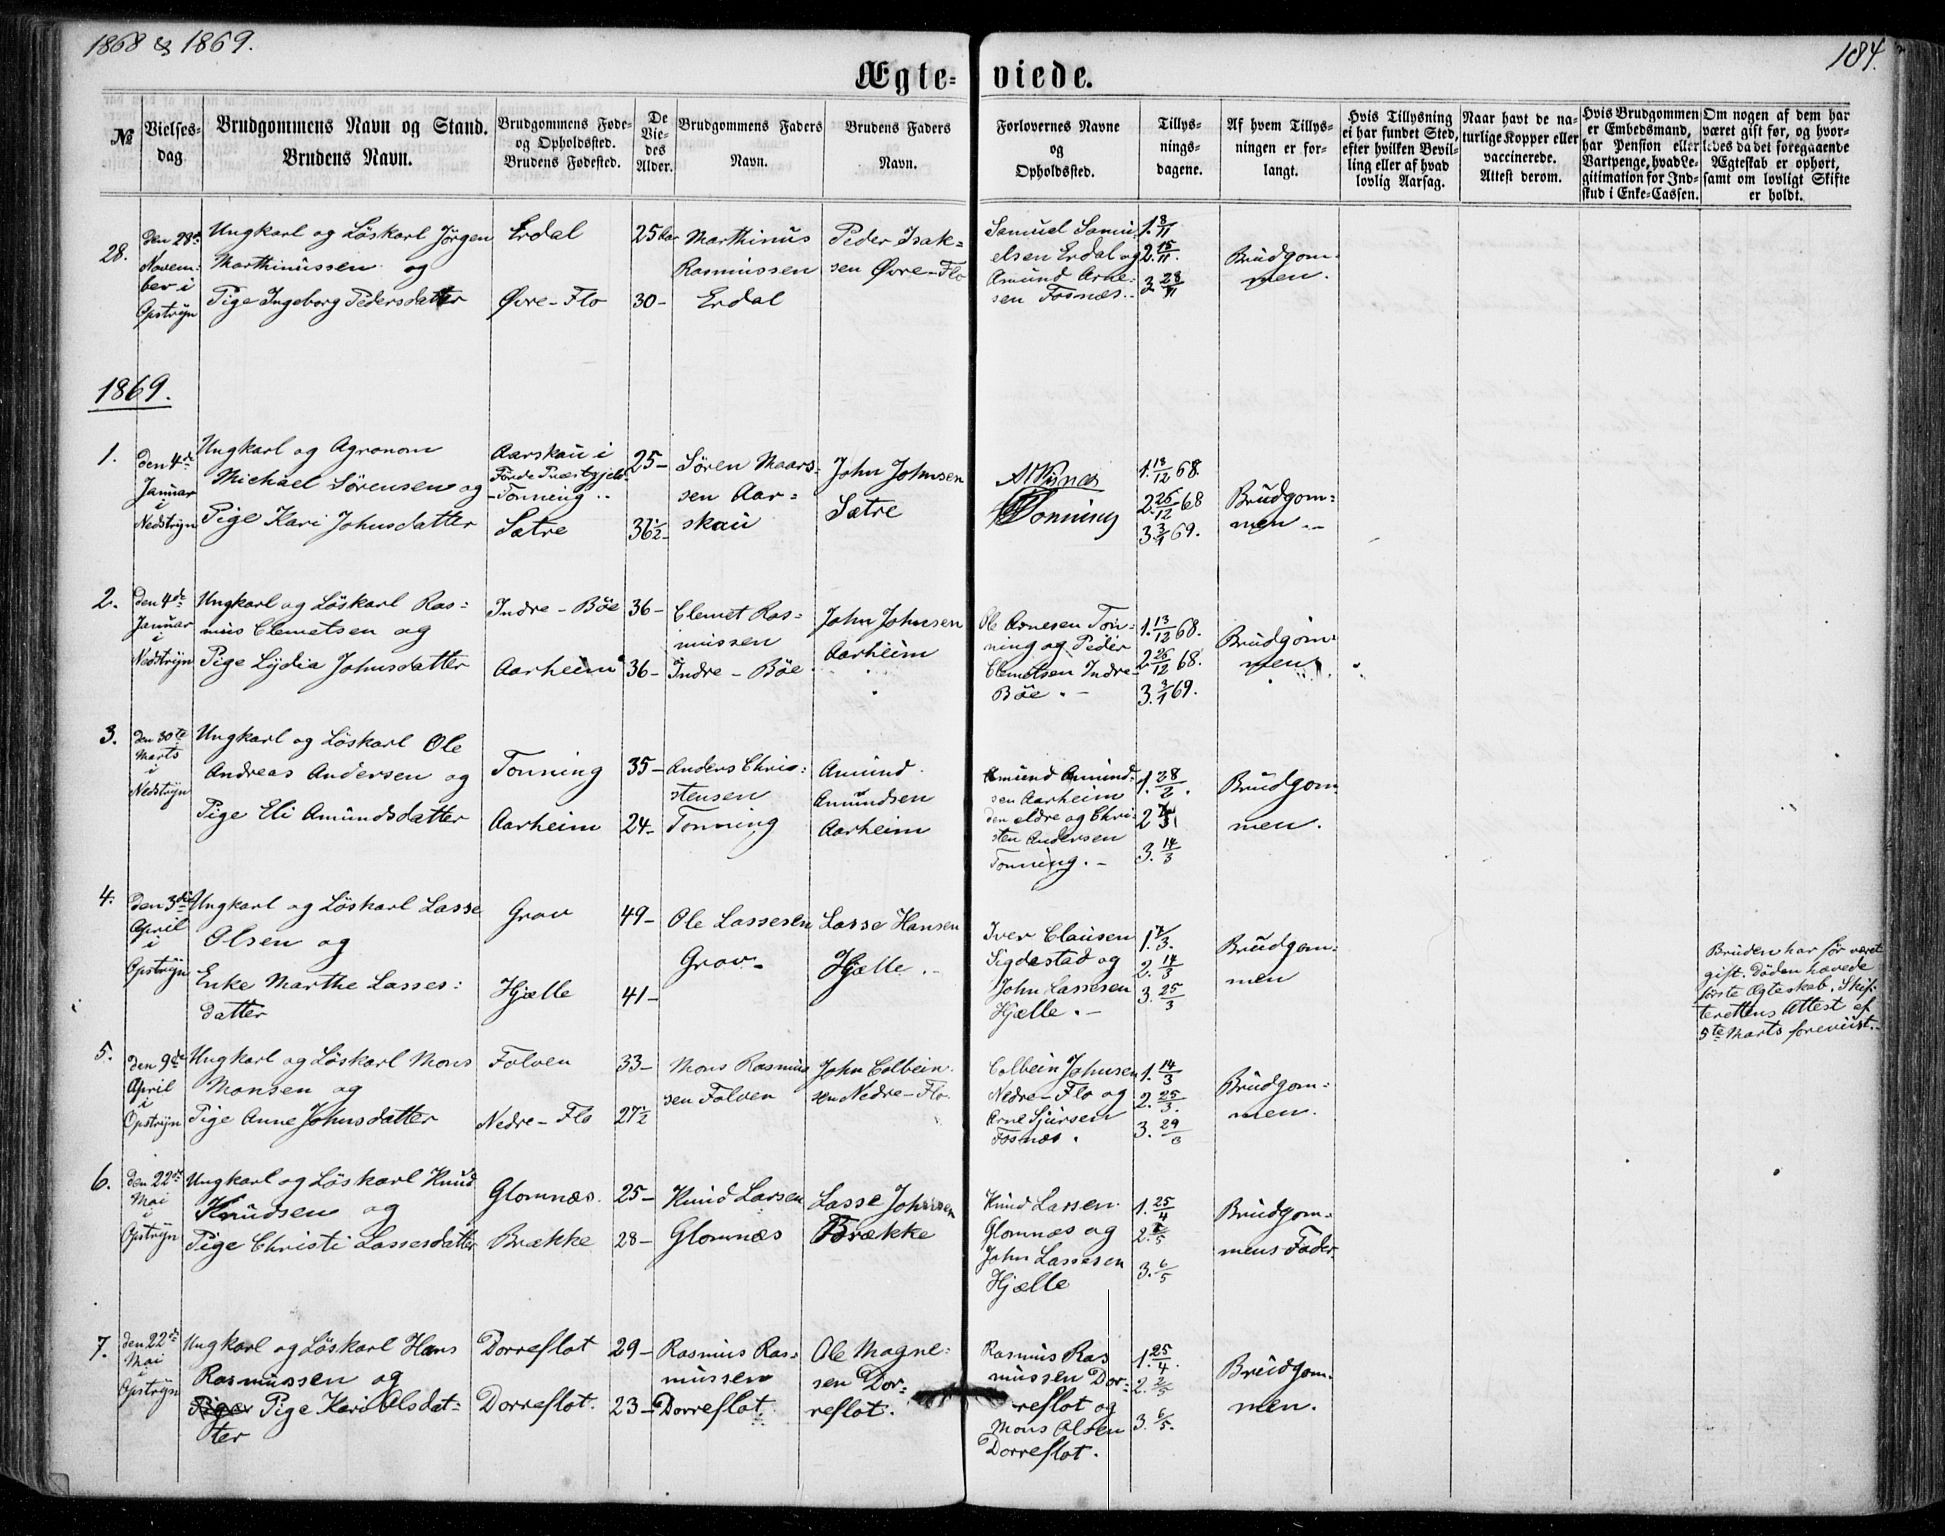 1868 & 1869.
184.
Ægte-viede.
№
Vielses-dag.
Brudgommens Navn og Stand.
Brudens Navn.
Brudgommens Føde- og Opholdssted.
Brudens Fødested.
De Vie-des Alder.
Brudgommens Faders Navn.
Brudens Faders Navn.
Forlovernes Navne og Opholdssted.
Tillys-nings-dagene.
Af hvem Tillys-ningen er for-langt.
Hvis Tillysning ei har fundet Sted, efter hvilken Bevil-ling eller af hvad lovlig Aarsag.
Naar havt de na-turlige Kopper eller vaccinerede. Attest derom.
Hvis Brudgommen er Embedsmand, har Pension eller Vartpenge, hvad Le-gitimation for Ind-skud i Enke-Cassen.
Om nogen af dem har været gift før, og hvor-ledes da det foregaaende Ægteskab er ophørt, samt om lovligt Skifte er holdt.
28.
den 28de
Novem-
ber i
Opstryn
Ungkarl og Löskarl Jørgen
Marthinussen og
Pige Ingeborg Pedersdatter
Erdal
Øvre-Flo
25 Aar
30-
Marthinus
Rasmussen
Erdal
Peder Isak-
sen Øvre-Flo
Samuel Samu-
elsen Erdal og
Amund Arne-
sen Fosnæs.-
1. 8/11
2. 15/11.
3. 28/11
Brudgom-
men.
1869.
1.
den 4de
Januar
i
Nedstryn
Ungkarl og Agronom
Michael Sörensen og
Pige Kari Johnsdatter
Aarskau i
Förde Præstgjeld.
-Tonning..
Sætre
25-
36½-
Sören Maars-
sen Aar-
skau
John Johnsen
Sætre
Tonning
1. 13/12 68.
2. 26/12 68
3. 3/1 69.
Brudgom-
men.-
2.
den 4de
Januar
i
Nedstryn
Ungkarl og Löskarl Ras-
mus Clemetsen og
Pige Lydia Johnsdatter
Indre-Böe
Aarheim
36-
36-
Clemet Ras-
mussen
Indre-Böe
John Johnsen
Aarheim
Ole Arnesen Ton-
ning og Peder
Clemetsen Indre-
Böe.-
1. 13/12 68.
2. 26/12 68.
3. 3/1 69.
Brudgom-
men.
3.
den 30te
Marts
i
Nedstryn
Ungkarl og Löskarl Ole
Andreas Andersen og
Pige Eli Amundsdatter
Tonning
Aarheim
35-
24-
Anders Chris-
stensen
Tonning
Amund
Amundsen
Aarheim
Amund Amund-
sen Aarheim
den eldre og Chri-
sten Andersen
Tonning.-
1. 28/2.
2. 7/3
3. 14/3
Brudgom-
men.
4.
den 3die
April
i
Opstryn
Ungkarl og Löskarl Lasse
Olsen og
Enke Marthe Lasses-
datter
Grov
Hjælle
49-
41-
Ole Lassesen
Grov-
Lasse Hansen
Hjælle.-
Iver Clausen
Sigdestad og
John Lassesen
Hjælle.-
1. 7/3.
2. 14/3
3. 25/3
Brudgom-
men
Bruden har før været
gift. Döden hævede
förste Ægteskab. Skif-
terettens Attest af
5te Marts foreviist.-
5.
den 9de
April
i
Opstryn
Ungkarl og Löskarl Mons
Monsen og
Pige Anne Johnsdatter
Folven
Nedre-Flo
33-
27½
Mons Rasmus
sen Folven
John Colbein-
sen Nedre-Flo.
Colbein Johnsen
Nedre-Flo og
Arne Sjursen
Fosnæs.
1. 14/3
2. 25/3.
3. 29/3
Brudgom-
men.
6.
den 22de
Mai
i
Opstryn
Ungkarl og Löskarl Knud
Knudsen og
Pige Christi Lassesdatter
Glomnæs.
Brække
25-
28-
Knud Larsen
Glomnæs
Lasse Johnsen
Brække
Knud Larsen
Glomnæs og
John Lassesen
Hjælle
1. 25/4
2. 2/5
3. 6/5
Brudgom-
mens Fader.
7.
den 22de
Mai
i
Opstryn
Ungkarl og Löskarl Hans
Rasmussen og
Pige Pige Kari Olsdat-
ter
Dorreflot
Dorreflot.
29-
23-
Rasmus Ras-
mussen
Dorreflot.
Ole Magne-
sen Dor-
reflot.
Rasmus Ras
mussen Dor-
reflot og
Mons Olsen
Dorreflot.
1. 25/4.
2. 2/5
3. 6/5.
Brudgom-
men.